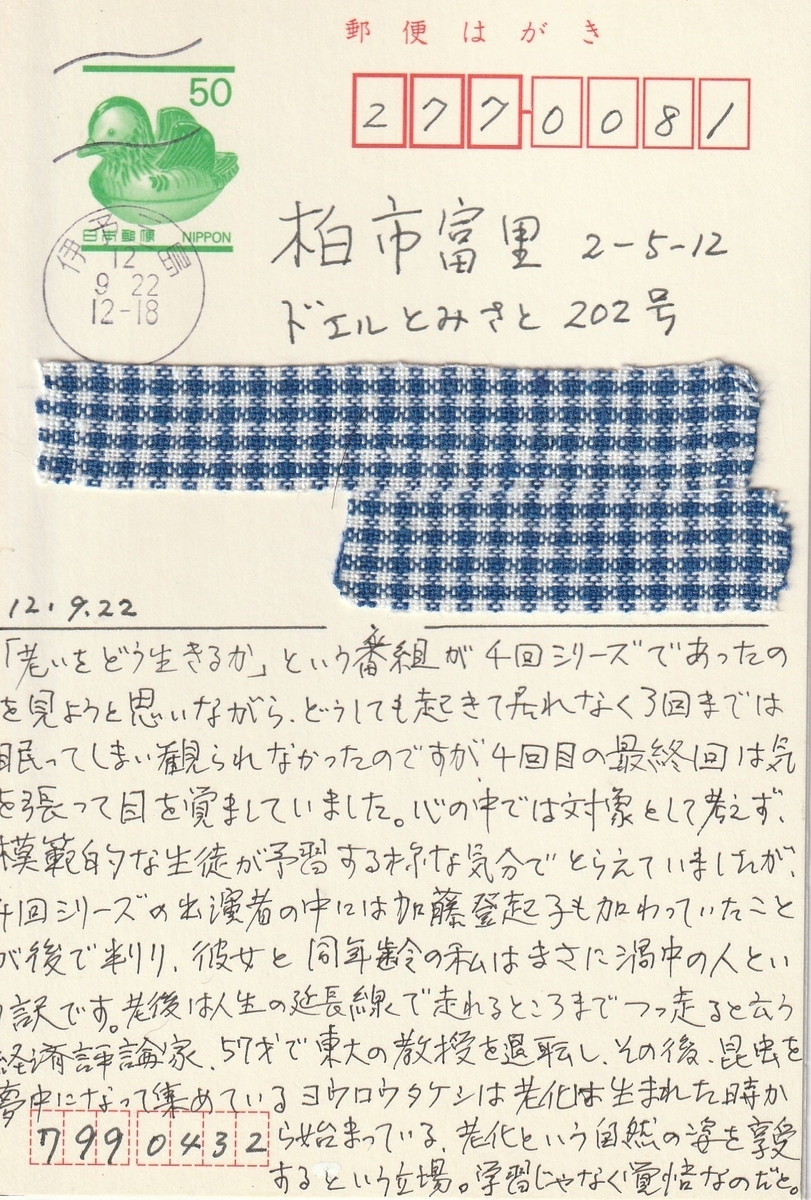 郵便はがき
50
日本郵便 NIPPON
277-0081
伊予三島
12
9 22
12-18
柏市富里 2-5-12
ドエルとみさと 202号
12.9.22
「老いをどう生きるか」という番組が4回シリーズであったの
を見ようと思いながら、どうしても起きて居れなく3回までは
眠ってしまい観られなかったのですが、4回目の最終回は気
を張って目を覚ましていました。心の中では対象として考えず、
模範的な生徒が予習する様な気分でとらえていましたが、
4回シリーズの出演者の中には加藤登起子も加わっていたこと
が後で判り、彼女と同年齢の私はまさに渦中の人とい
う訳です。老後は人生の延長線で走れるところまでつっ走ると云う
経済評論家、57才で東大の教授を退転し、その後、昆虫を
夢中になって集めているヨウロウタケシは老化は生まれた時か
ら始まっている、老化という自然の姿を享受
するという立場。学習じゃなく覚悟なのだと。
7990432